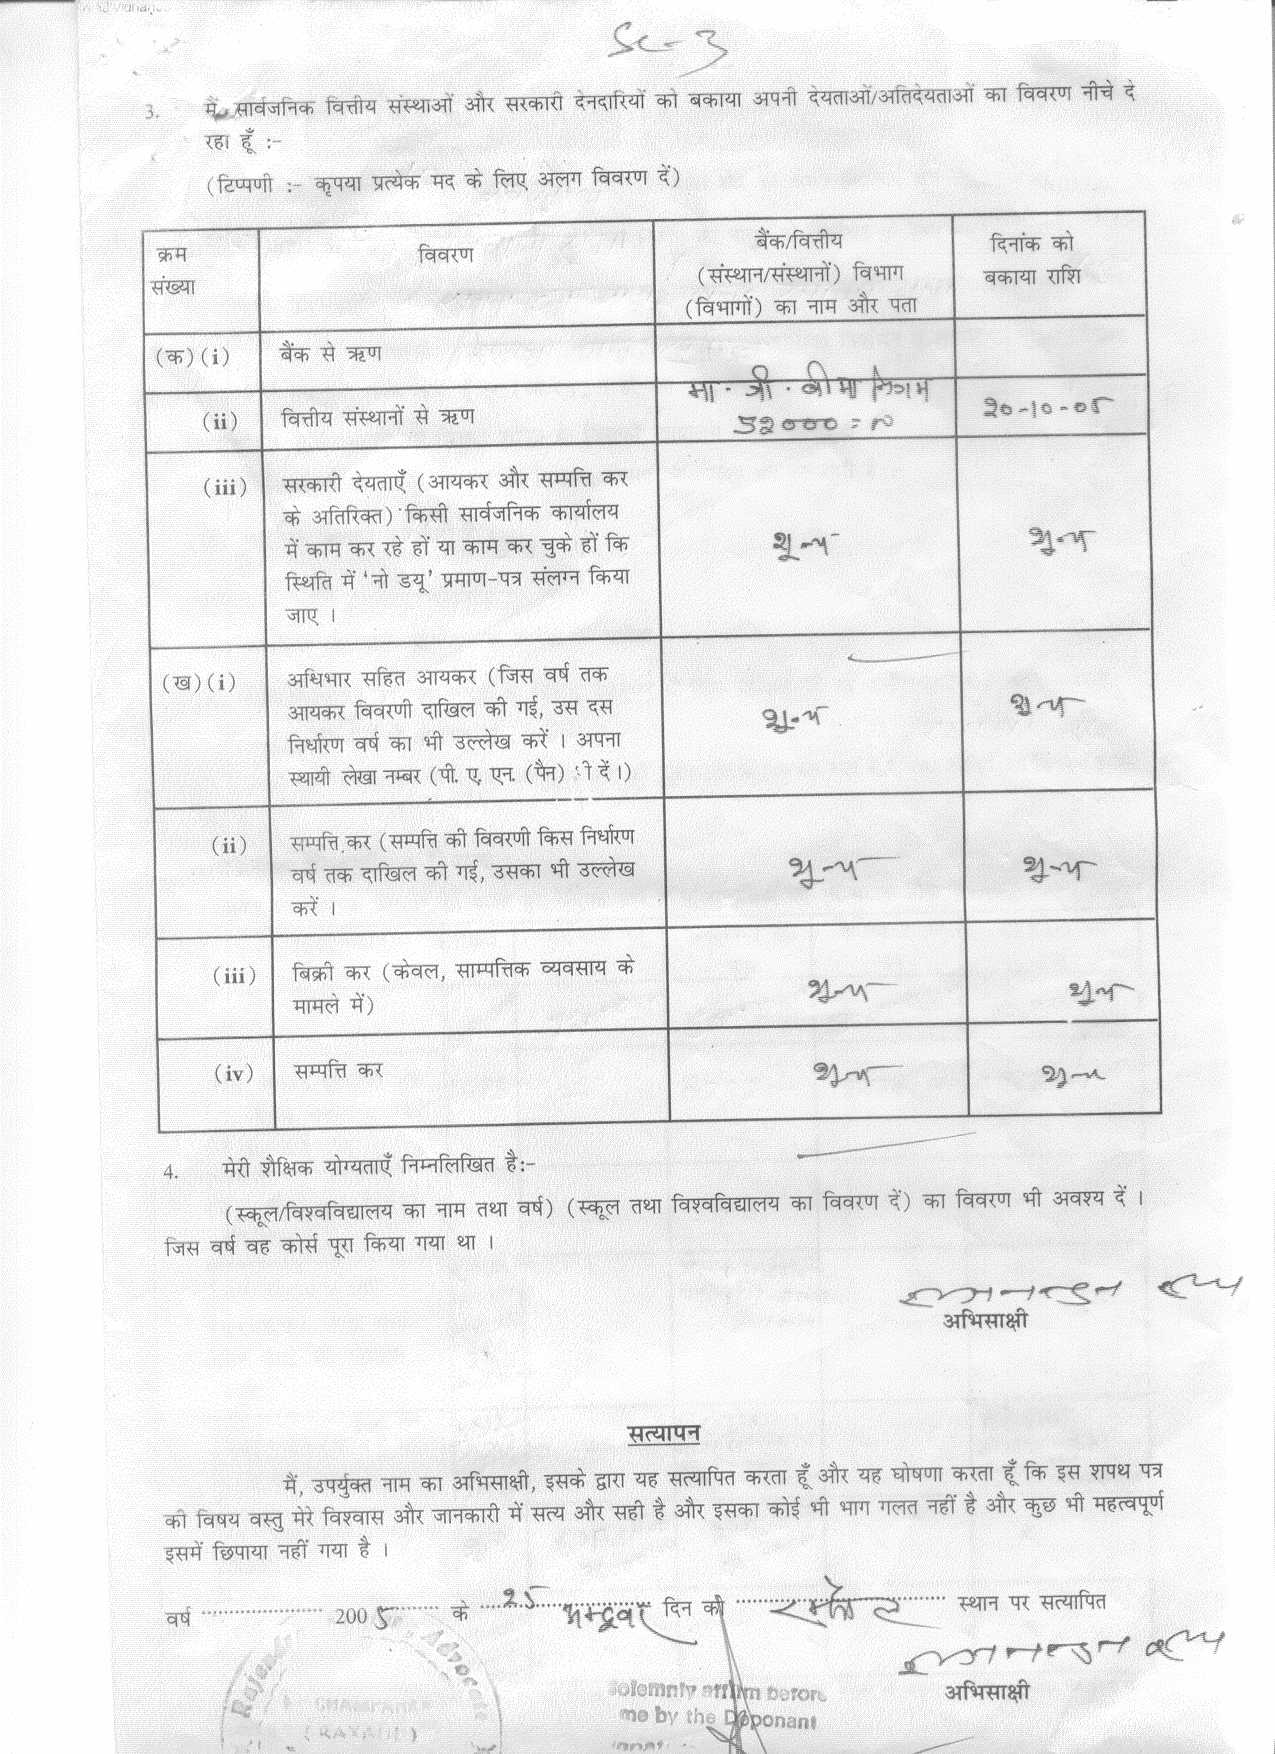 Sc-3
3. मैं सार्वजनिक वित्तीय संस्थाओं और सरकारी देनदारियों को बकाया अपनी देयताओं/अतिदेयताओं का विवरण नीचे दे
रहा हूँ :-
(टिप्पणी :- कृपया प्रत्येक मद के लिए अलग विवरण दें)
क्रम संख्या
विवरण
बैंक/वित्तीय
(संस्थान/संस्थानों) विभाग
(विभागों) का नाम और पता
दिनांक को
बकाया राशि
(क)(i) बैंक से ऋण
(ii) वित्तीय संस्थानों से ऋण
भा. जी. बीमा निगम
52000=
20-10-05
(iii) सरकारी देयताएँ (आयकर और सम्पत्ति कर
के अतिरिक्त) किसी सार्वजनिक कार्यालय
में काम कर रहे हों या काम कर चुके हों कि
स्थिति में 'नो डयू' प्रमाण-पत्र संलग्न किया
जाए ।
शून्य शून्य
(ख)(i) अधिभार सहित आयकर (जिस वर्ष तक
आयकर विवरणी दाखिल की गई, उस दस
निर्धारण वर्ष का भी उल्लेख करें । अपना
स्थायी लेखा नम्बर (पी. ए. एन. (पैन) दें।)
शून्य शून्य
(ii) सम्पत्ति कर (सम्पत्ति की विवरणी किस निर्धारण
वर्ष तक दाखिल की गई, उसका भी उल्लेख
करें ।
शून्य शून्य
(iii) बिक्री कर (केवल, साम्पत्तिक व्यवसाय के
मामले में)
शून्य शून्य
(iv) सम्पत्ति कर शून्य शून्य
4. मेरी शैक्षिक योग्यताएँ निम्नलिखित है:-
(स्कूल/विश्वविद्यालय का नाम तथा वर्ष) (स्कूल तथा विश्वविद्यालय का विवरण दें) का विवरण भी अवश्य दें ।
जिस वर्ष वह कोर्स पूरा किया गया था ।
अभिसाक्षी
सत्यापन
मैं, उपर्युक्त नाम का अभिसाक्षी, इसके द्वारा यह सत्यापित करता हूँ और यह घोषणा करता हूँ कि इस शपथ पत्र
की विषय वस्तु मेरे विश्वास और जानकारी में सत्य और सही है और इसका कोई भी भाग गलत नहीं है और कुछ भी महत्वपूर्ण
इसमें छिपाया नहीं गया है ।
वर्ष 2005 के 25 अक्टूबर दिन को स्थान पर सत्यापित
अभिसाक्षी
Solemnly affirm before
me by the Deponant
Advocate